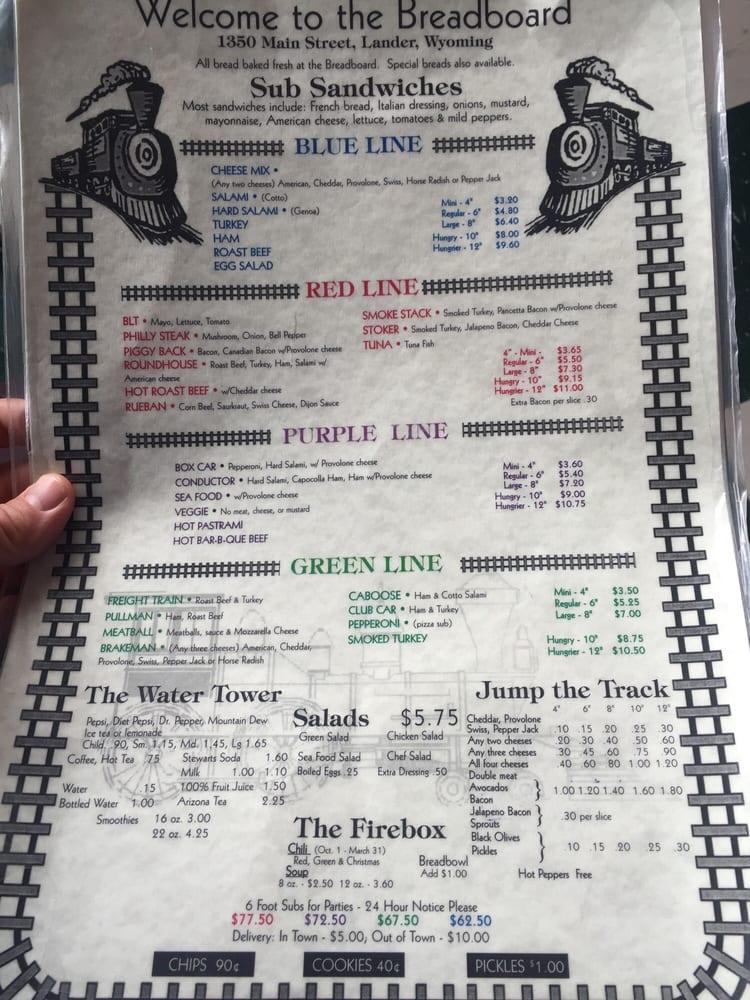 Welcome to the Breadboard
1350 Main Street, Lander, Wyoming
All bread baked fresh at the Breadboard. Special breads also available.
Sub Sandwiches
Most sandwiches include: French bread, Italian dressing, onions, mustard,
mayonnaise, American cheese, lettuce, tomatoes & mild peppers.
BLUE LINE
CHEESE MIX •
(Any two cheeses) American, Cheddar, Provolone, Swiss, Horse Radish or Pepper Jack
SALAMI • (Cotto)
HARD SALAMI • (Genoa)
TURKEY
HAM
ROAST BEEF
EGG SALAD
Mini - 4" $3.20
Regular - 6" $4.80
Large - 8" $6.40
Hungry - 10" $8.00
Hungrier - 12" $9.60
RED LINE
BLT • Mayo, Lettuce, Tomato
PHILLY STEAK • Mushroom, Onion, Bell Pepper
PIGGY BACK • Bacon, Canadian Bacon w/Provolone cheese
ROUNDHOUSE • Roast Beef, Turkey, Ham, Salami w/
American cheese
HOT ROAST BEEF • w/Cheddar cheese
RUEBAN • Corn Beef, Saurkraut, Swiss Cheese, Dijon Sauce
SMOKE STACK • Smoked Turkey, Pancetta Bacon w/Provolone cheese
STOKER • Smoked Turkey, Jalapeno Bacon, Cheddar Cheese
TUNA • Tuna Fish
4" - Mini - $3.65
Regular - 6" $5.50
Large - 8" $7.30
Hungry - 10" $9.15
Hungrier - 12" $11.00
Extra Bacon per slice .30
PURPLE LINE
BOX CAR • Pepperoni, Hard Salami, w/ Provolone cheese
CONDUCTOR • Hard Salami, Capocolla Ham, Ham w/Provolone cheese
SEA FOOD • w/Provolone cheese
VEGGIE • No meat, cheese, or mustard
HOT PASTRAMI
HOT BAR-B-QUE BEEF
Mini - 4" $3.60
Regular - 6" $5.40
Large - 8" $7.20
Hungry - 10" $9.00
Hungrier - 12" $10.75
GREEN LINE
FREIGHT TRAIN • Roast Beef & Turkey
PULLMAN • Ham, Roast Beef
MEATBALL • Meatballs, sauce & Mozzarella Cheese
BRAKEMAN • (Any three cheeses) American, Cheddar,
Provolone, Swiss, Pepper Jack or Horse Radish
CABOOSE • Ham & Cotto Salami
CLUB CAR • Ham & Turkey
PEPPERONI • (pizza sub)
SMOKED TURKEY
Mini - 4" $3.50
Regular - 6" $5.25
Large - 8" $7.00
Hungry - 10" $8.75
Hungrier - 12" $10.50
The Water Tower
Pepsi, Diet Pepsi, Dr. Pepper, Mountain Dew
Ice tea or lemonade
Child .90, Sm 1.15, Md. 1.45, Lg 1.65
Coffee, Hot Tea .75 Stewarts Soda 1.60
Milk 1.00 1.10
Water .15 100% Fruit Juice 1.50
Bottled Water 1.00 Arizona Tea 2.25
Smoothies 16 oz. 3.00
22 oz. 4.25
Salads $5.75
Green Salad Chicken Salad
Sea Food Salad Chef Salad
Boiled Eggs .25 Extra Dressing .50
Jump the Track
4" 6" 8" 10" 12"
Cheddar, Provolone
Swiss, Pepper Jack .10 .15 .20 .25 .30
Any two cheeses .20 .30 .40 .50 .60
Any three cheeses .30 .45 .60 .75 .90
All four cheeses .40 .60 .80 1.00 1.20
Double meat
Avocados 1.00 1.20 1.40 1.60 1.80
Bacon
Jalapeno Bacon .30 per slice
Sprouts
Black Olives .10 .15 .20 .25 .30
Pickles
Hot Peppers Free
The Firebox
Chili (Oct. 1 - March 31)
Red, Green & Christmas
Soup
8 oz. - $2.50 12 oz. - 3.60
Breadbowl
Add $1.00
6 Foot Subs for Parties - 24 Hour Notice Please
$77.50 $72.50 $67.50 $62.50
Delivery: In Town - $5.00, Out of Town - $10.00
CHIPS 90¢ COOKIES 40¢ PICKLES $1.00